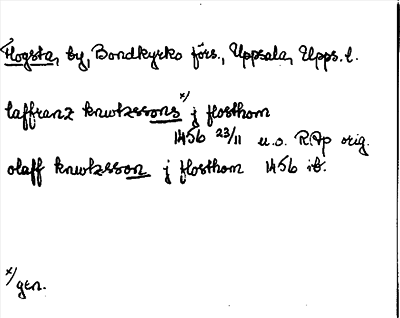 Flogsta, by, Bondkyrko förs., Uppsala, Upps. l.
laffranz knwtzssons x/ j flosthom
1456 23/11 u.o. RAp orig.
olaff knwtzsson j flosthom 1456 ib.
x/ gen.